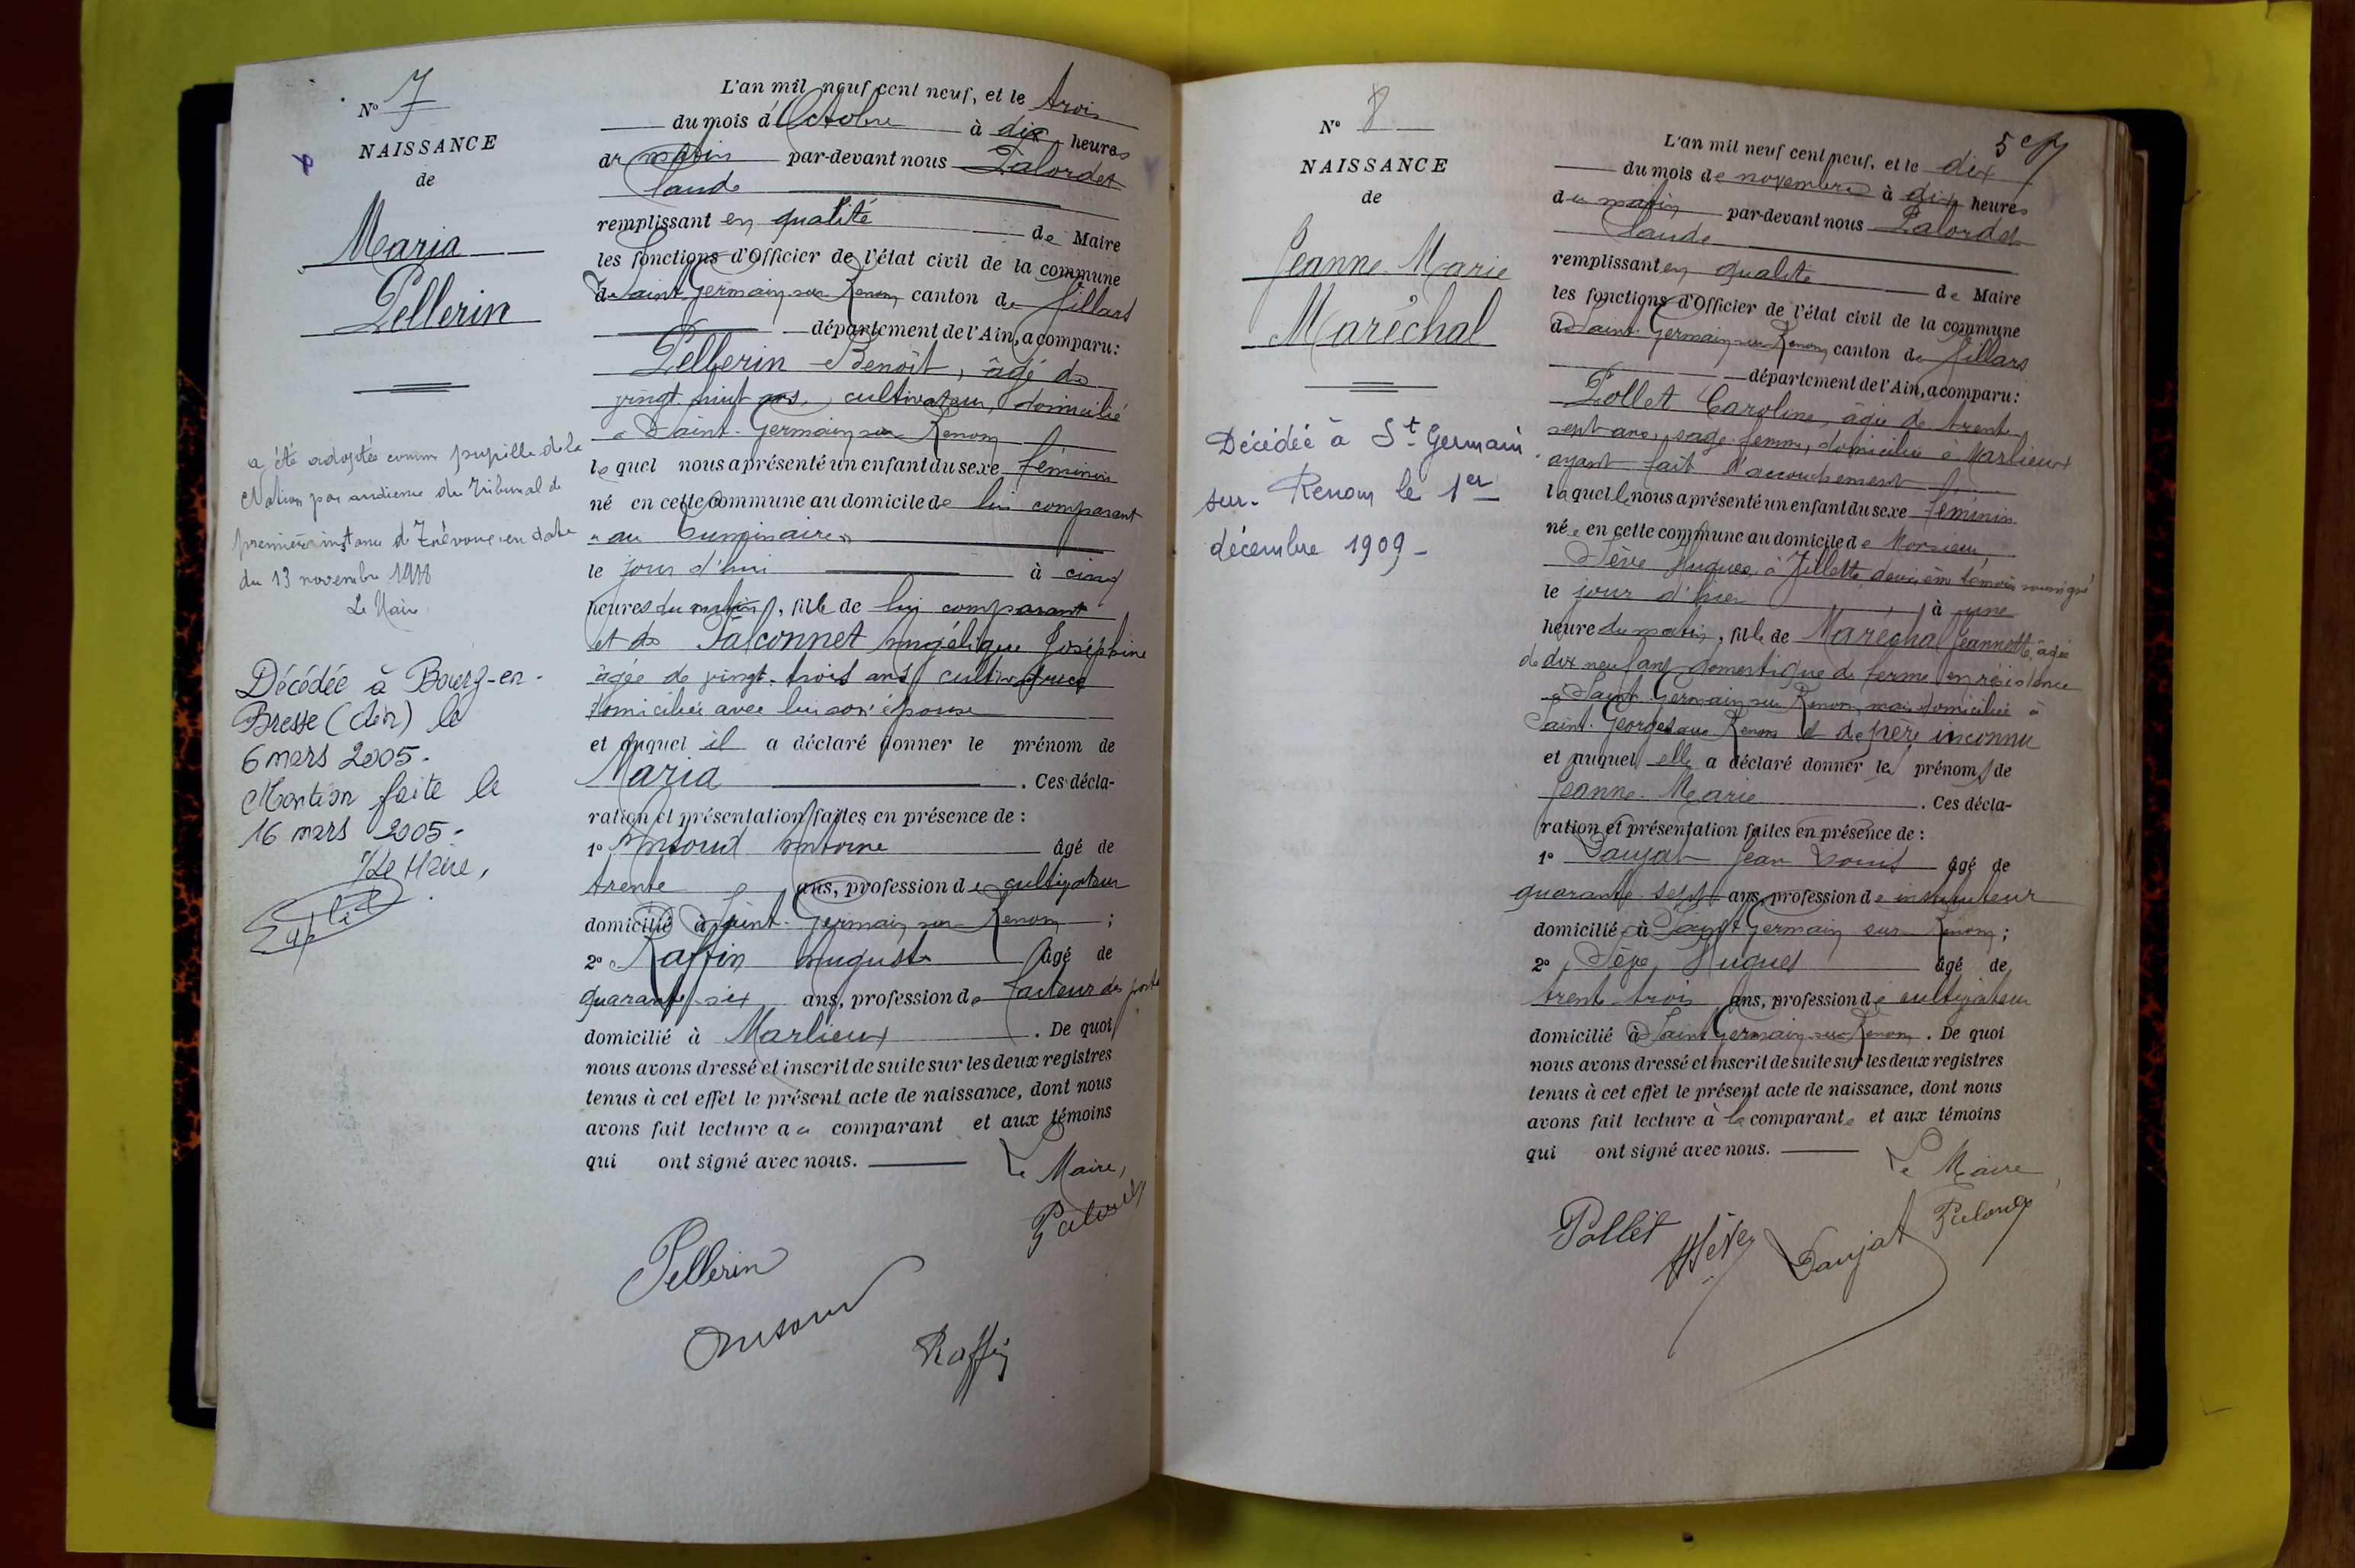 N° 7
NAISSANCE
de
Maria
Pellerin
a été adoptée comme pupille de la
Nation par audience du Tribunal de
première instance de Trévoux en date
du 13 novembre 1918
Le Maire
Décédée à Bourg-en-
Bresse (Ain) le
6 mars 2005.
Mention faite le
16 mars 2005.
Le Maire,
L'an mil neuf cent neuf, et le trois
du mois d'Octobre à dix heures
du matin par-devant nous Palordet
Claude
remplissant en qualité de Maire
les fonctions d'Officier de l'état civil de la commune
de Saint-Germain sur Renom canton de Villars
département de l'Ain, a comparu:
Pellerin Benoît, âgé de
vingt-huit ans, cultivateur, domicilié
à Saint-Germain sur Renom
lequel nous a présenté un enfant du sexe féminin
né en cette commune au domicile de lui comparant
"au
le jour d'hui à cinq
heures du matin, fille de lui comparant
et de Falconnet Angélique Joséphine
âgée de vingt-trois ans cultivatrice
domiciliée avec lui son épouse
et auquel il a déclaré donner le prénom de
Maria. Ces décla-
ration et présentation faites en présence de :
1° Ansoud Antoine âgé de
trente ans, profession de cultivateur
domicilié à Saint-Germain sur Renom ;
2° Raffin Auguste âgé de
quarante-six ans, profession de facteur des postes
domicilié à Marlieux. De quoi
nous avons dressé et inscrit de suite sur les deux registres
tenus à cet effet le présent acte de naissance, dont nous
avons fait lecture au comparant et aux témoins
qui ont signé avec nous.
Le Maire,
Pellerin
Raffin
N° 8
NAISSANCE
de
Jeanne-Marie
Maréchal
Décédée à St-Germain
sur-Renom le 1er
décembre 1909-
5
L'an mil neuf cent neuf, et le dix
du mois de novembre à dix heures
du matin par-devant nous Palordet
Claude
remplissant en qualité de Maire
les fonctions d'Officier de l'état civil de la commune
de Saint-Germain sur Renom canton de Villars
département de l'Ain, a comparu:
Pollet Caroline, âgée de trente
sept ans, sage-femme, domiciliée à Marlieux
ayant fait l'accouchement
laquelle nous a présenté un enfant du sexe féminin
née en cette commune au domicile de Monsieur
Sève Hugues, à Villette, deuxième témoin soussigné
le jour d'hier à une
heure du matin, fille de Maréchal Jeannette, âgée
de dix neuf ans domestique de ferme en résidence
à Saint-Germain sur Renom, mais domiciliée à
Saint-Georges sur Renom et de père inconnu
et auquel elle a déclaré donner les prénoms de
Jeanne-Marie. Ces décla-
ration et présentation faites en présence de :
1° Daujat Jean Louis âgé de
quarante-sept ans, profession de instituteur
domicilié à Saint-Germain sur Renom ;
2° Sève Hugues âgé de
trente-trois ans, profession de cultivateur
domicilié à Saint-Germain-sur-Renom. De quoi
nous avons dressé et inscrit de suite sur les deux registres
tenus à cet effet le présent acte de naissance, dont nous
avons fait lecture à la comparante et aux témoins
qui ont signé avec nous.
Le Maire,
Pollet
HSève
Daujat